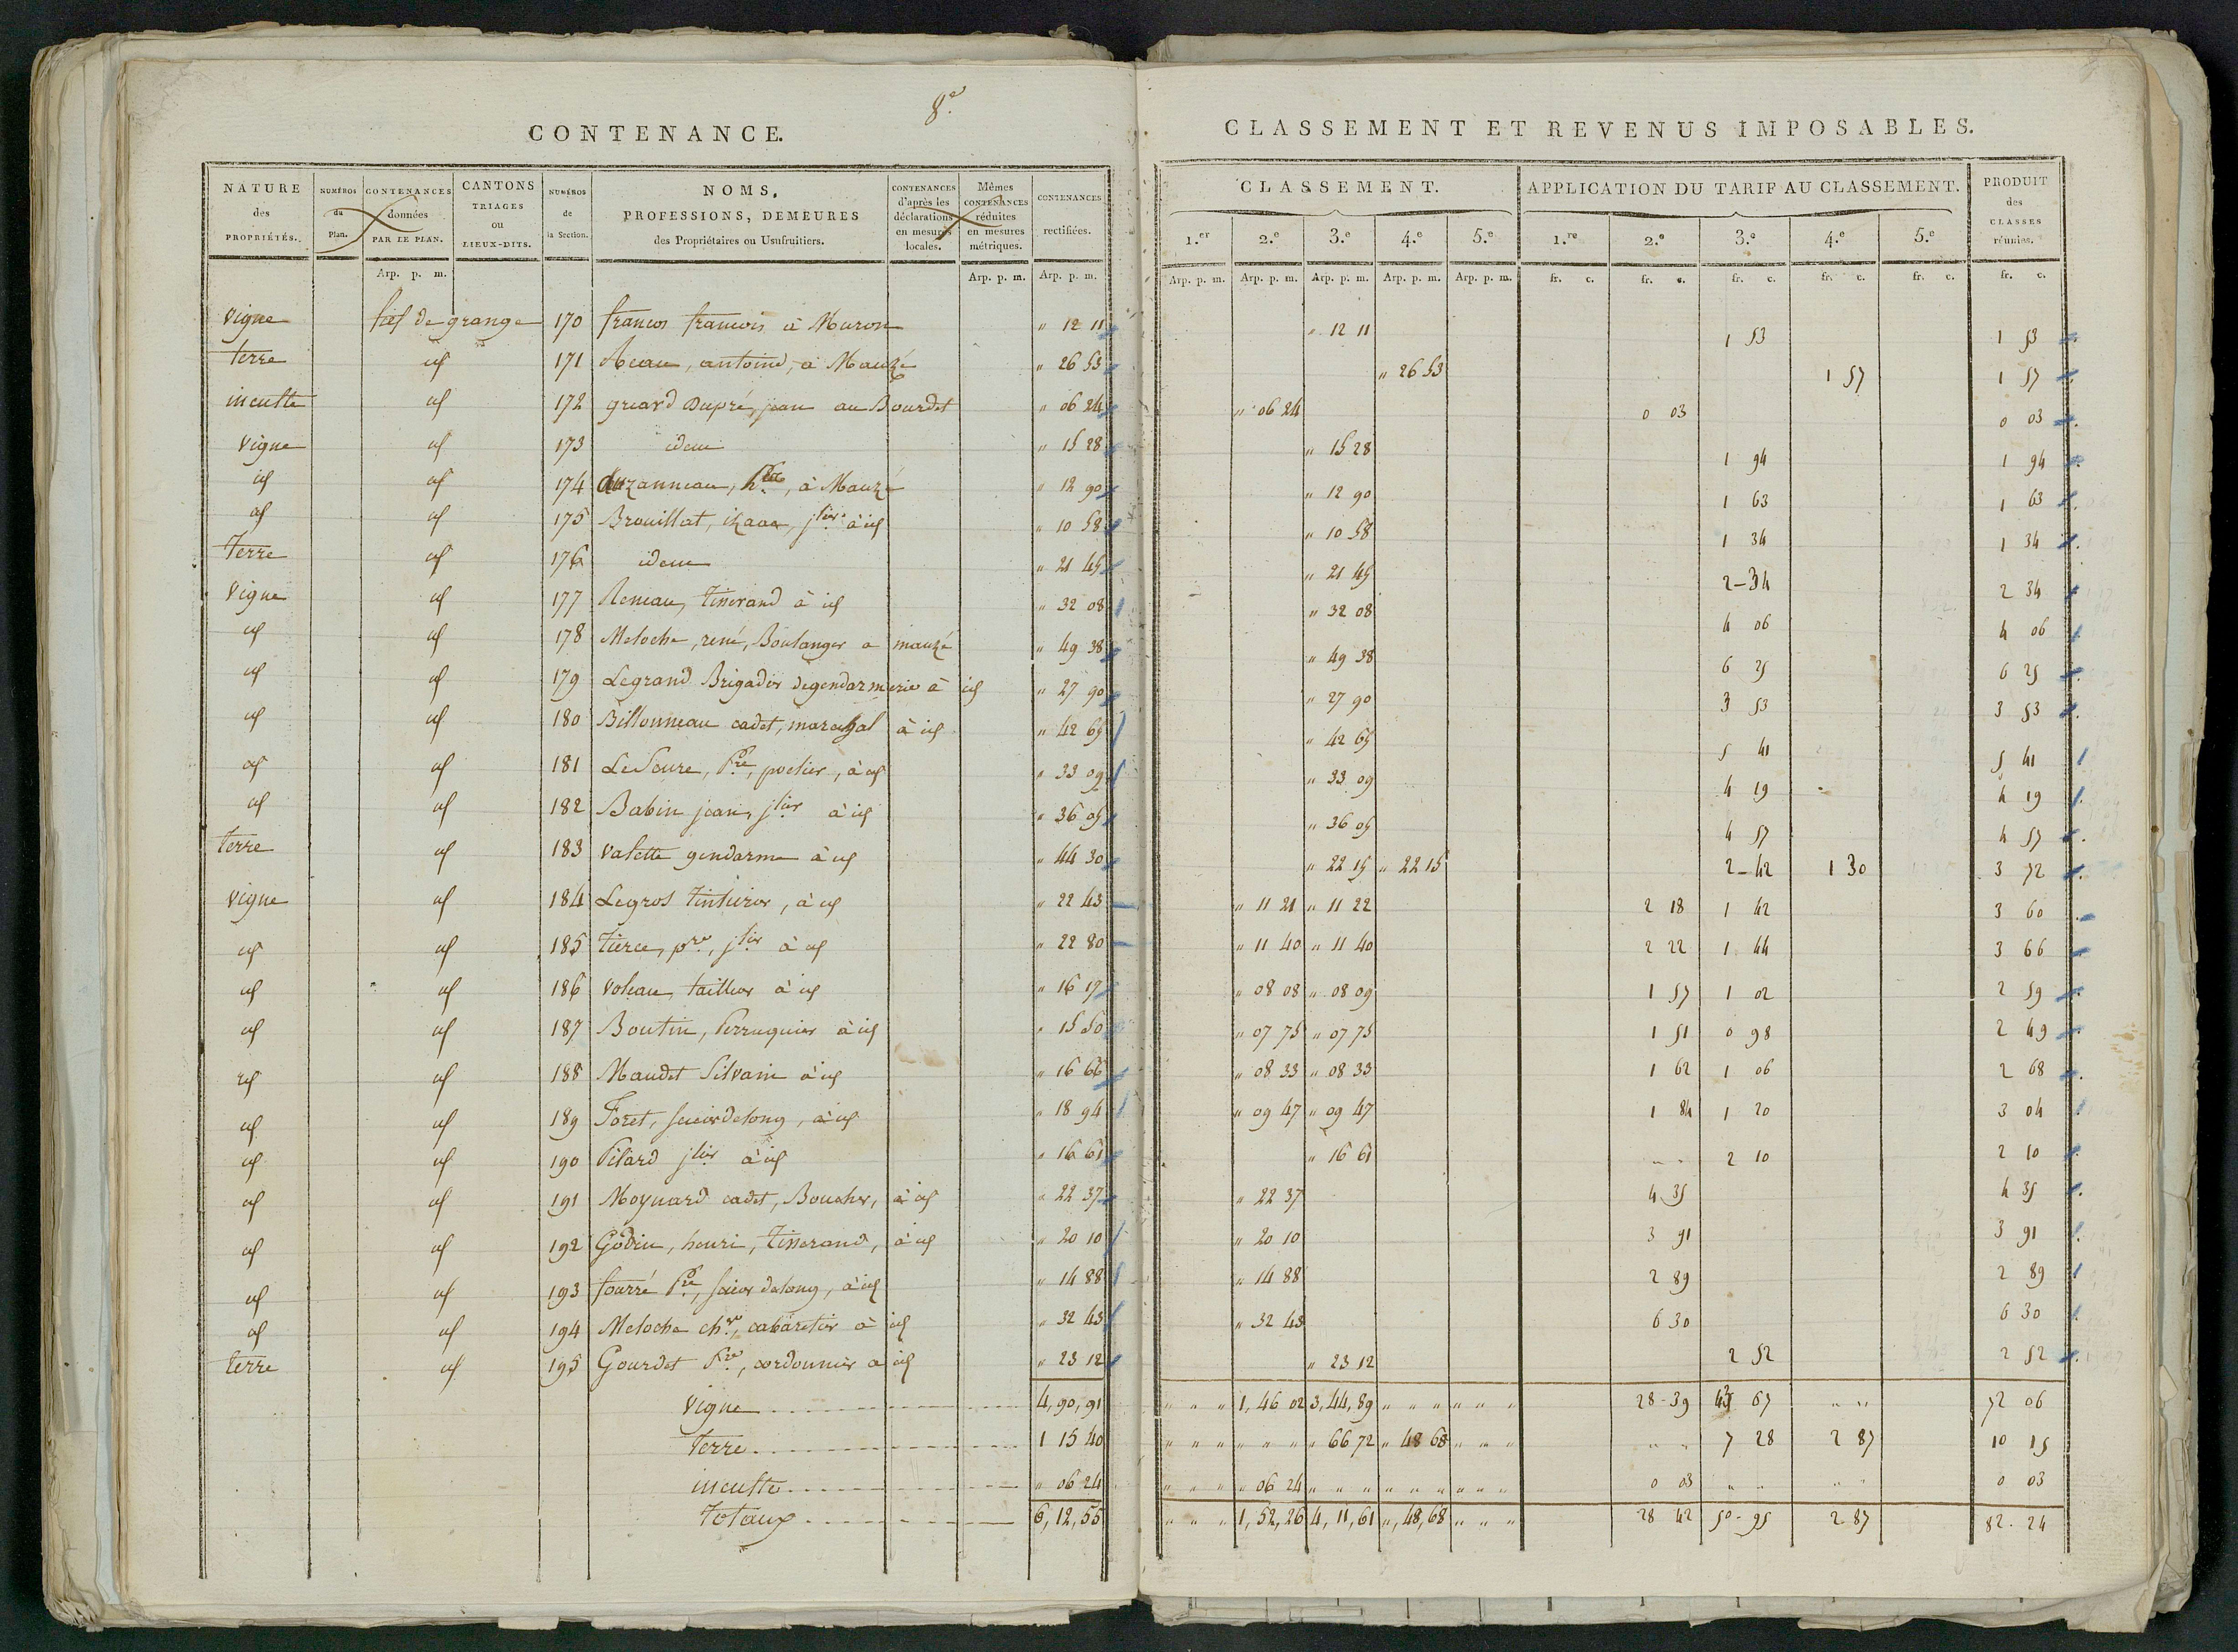 8e.
CONTENANCE.
NATURE des PROPRIÉTÉS. NUMÉROS du Plan. CONTENANCES données PAR LE PLAN. CANTONS TRIAGES ou LIEUX-DITS. NUMÉROS de la Section. NOMS, PROFESSIONS, DEMEURES des Propriétaires ou Usufruitiers. CONTENANCES d'après les déclarations en mesures locales. Mêmes CONTENANCES réduites en mesures métriques. CONTENANCES rectifiées.
Arp. p. m. Arp. p. m. Arp. p. m.
vigne fief de grange 170 francos francois à Muron " 12 11
terre id 171 Reau, antoine, à Mauzé " 26 53
inculte id 172 greard Dupré, jean au Bourdet " 06 24
vigne id 173 idem " 15 28
id id 174 à Mauzé " 12 90
id id 175 Brouillat, jlier à id " 10 58
Terre id 176 idem " 21 45
Vigne id 177 Reneau, tisserand à id " 32 08
id id 178 Meloche, rené, Boulanger a mauzé " 49 38
id id 179 Legrand Brigadier degendarmerie à id " 27 90
id id 180 Billonneau cadet, marechal à id " 42 65
id id 181 LeSeure, Pre, potier, à id " 33 09
id id 182 Babin jean, jlier à id " 36 05
terre id 183 valette gendarme à id " 44 30
vigne id 184 Legros tinturier, à id " 22 43
id id 185 tierce, pre, jlier à id " 22 80
id id 186 voleau, tailleur à id " 16 17
id id 187 Boutin, Perruquier à id " 15 50
id id 188 Maudet Silvain à id " 16 66
id id 189 Foret, scieurdelong, à id " 18 94
id id 190 Pilard jlier à id " 16 61
id id 191 Moynard cadet, Boucher, à id " 22 37
id id 192 Godin, henri, tisserand, à id " 20 10
id id 193 fourré Pre, scieur delong, à id " 14 88
id id 194 Meloche chre, cabaretier à id " 32 43
terre id 195 Gourdet Pre, cordonnier a id " 23 12
vigne 4,90,91
terre 1 15 40
inculte " 06 24
Totaux 6,12,55
CLASSEMENT ET REVENUS IMPOSABLES.
CLASSEMENT. APPLICATION DU TARIF AU CLASSEMENT. PRODUIT des CLASSES réunies.
1.er 2.e 3.e 4.e 5.e 1.re 2.e 3.e 4.e 5.e
Arp. p. m. Arp. p. m. Arp. p. m. Arp. p. m. Arp. p. m. fr. c. fr. c. fr. c. fr. c. fr. c. fr. c.
" 12 11 1 53 1 53
" 26 53 1 57 1 57
" 06 24 0 03 0 03
" 15 28 1 94 1 94
" 12 90 1 63 1 63
" 10 58 1 34 1 34
" 21 45 2-34 2 34
" 32 08 4 06 4 06
" 49 38 6 25 6 25
" 27 90 3 53 3 53
" 42 65 5 41 5 41
" 33 09 4 19 4 19
" 36 05 4 57 4 57
" 22 15 " 22 15 2-42 1 30 3 72
" 11 21 " 11 22 2 18 1 42 3 60
" 11 40 " 11 40 2 22 1 44 3 66
" 08 08 " 08 09 1 57 1 02 2 59
" 07 75 " 07 75 1 51 0 98 2 49
" 08 33 " 08 33 1 62 1 06 2 68
" 09 47 " 09 47 1 84 1 20 3 04
" 16 61 " " 2 10 2 10
" 22 37 4 35 4 35
" 20 10 3 91 3 91
" 14 88 2 89 2 89
" 32 43 6 30 6 30
" 23 12 2 52 2 52
" " " 1,46 02 3,44,89 " " " " " " 28-39 43 67 " " 72 06
" " " " " " " 66 72 " 48 68 " " " " " 7 28 2 87 10 15
" " " " 06 24 " " " " " " " " " 0 03 " " " " 0 03
" " " 1,52,26 4,11,61 ",48,68 " " " 28 42 50-95 2-87 82-24